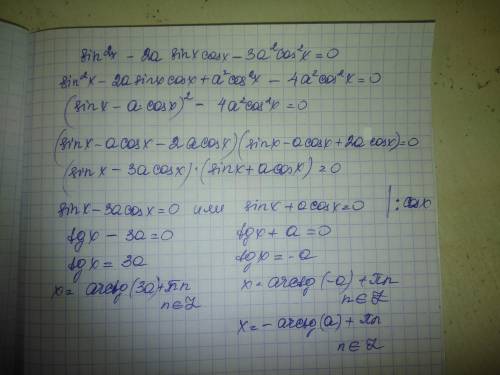 sin²x - 2a sinx cosx - 3a²cos²x = 0
sin²x - 2a sinx cosx + a²cos²x - 4a²cos²x = 0
(sinx - a cosx)² - 4a²cos²x = 0
(sinx - a cosx - 2a cosx)(sinx - a cosx + 2a cosx) = 0
(sinx - 3a cosx)·(sinx + a cosx) = 0
sinx - 3a cosx = 0 или sinx + a cosx = 0 | : cosx
tgx - 3a = 0 tgx + a = 0
tgx = 3a tgx = -a
x = arctg(3a) + πn x = arctg(-a) + πn
n∈Z n∈Z
x = -arctg(a) + πn
n∈Z